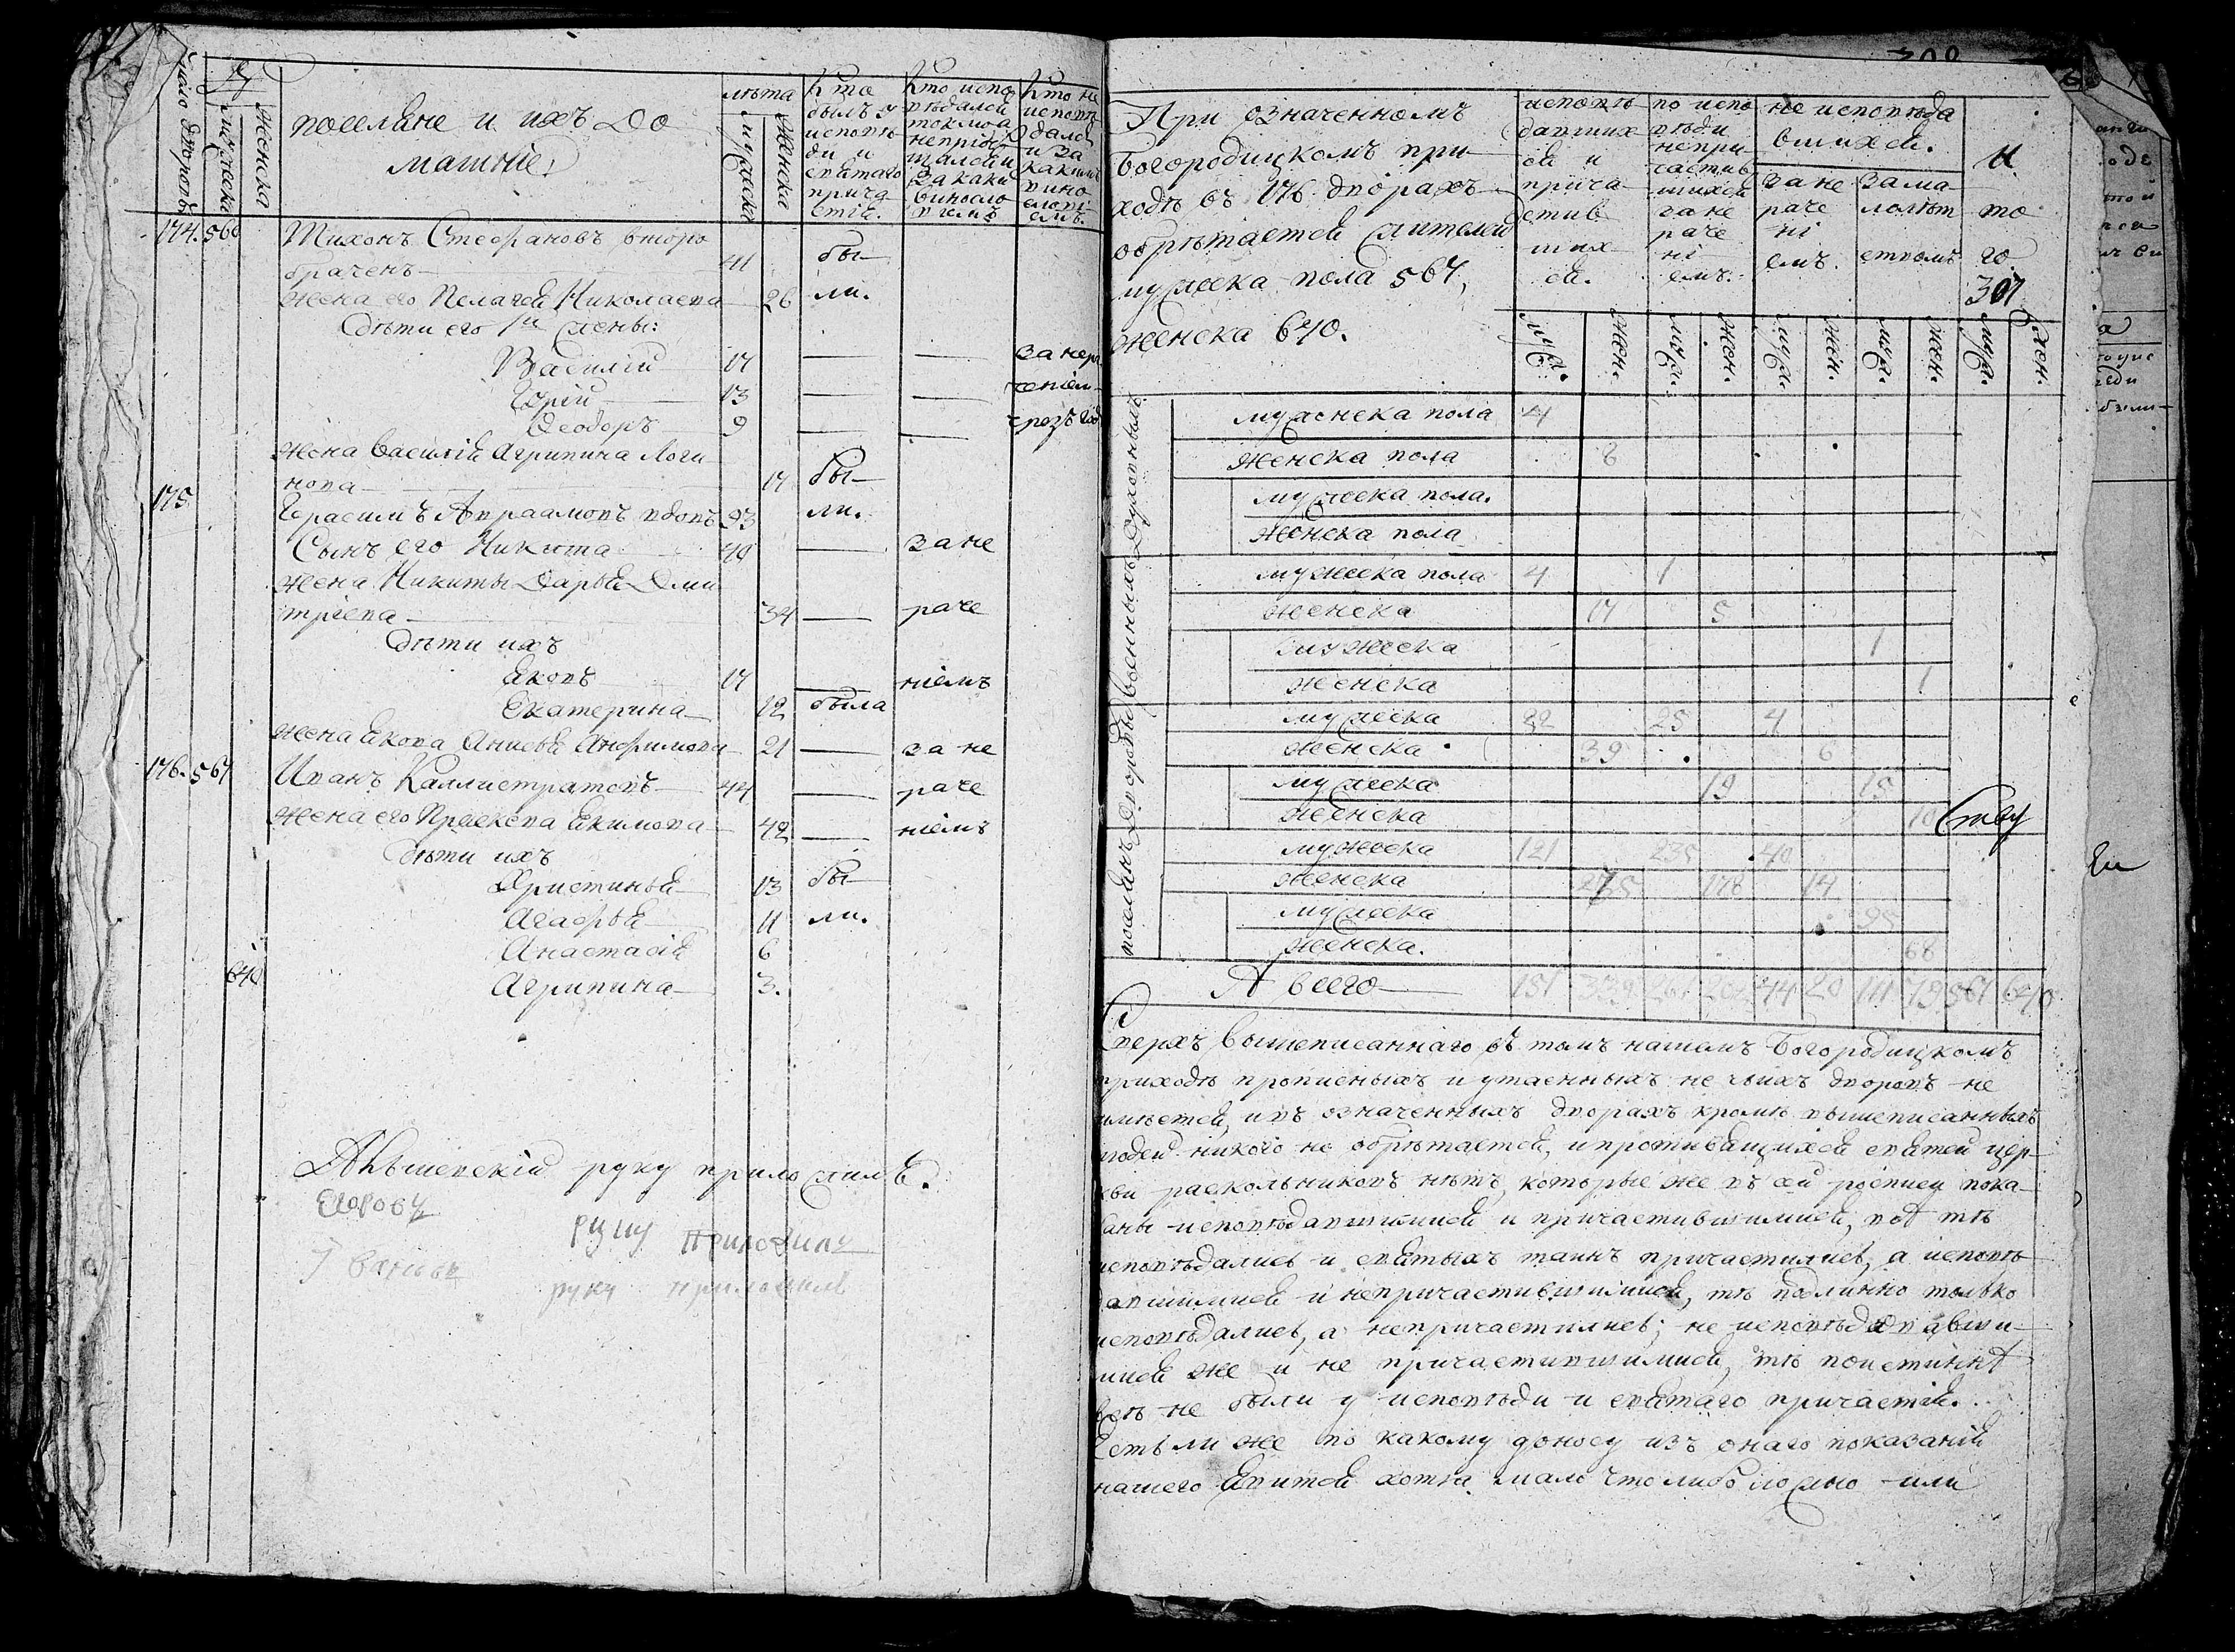 число дворовъ
мужеска
женска
поселяне и ихъ до
машніе:
лѣта
мужеска
женска
кто
былъ у
исповѣ
ди и
святаго
прича
стія.
кто испо
вѣдался
токмо а
непріоб
щался и
за каки
винosло
кто не
исповѣ
дался
и за
какимъ
вино
слові
емъ.
174. 560
Тихонъ Стефановъ второ
браченъ 41 бы
жена его Пелагея Николаева 26 ли.
дѣти его 1й жены:
Василій 17 за нера
Юрій 13 ченіем
Ѳеодоръ 9 чрезъ год
жена Василія Агрипина Логи
нова 17 бы
175 Герасимъ Авраамовъ вдовъ 93 ли.
Сынъ его Никита 40 за не
жена Никиты Дарья Дми
тріева 34 раче
дѣти ихъ
Яковъ 17 ніемъ
Екатерина 12 была
жена Якова Анисья Анфимова 21 за не
176. 567 Иванъ Каллистратовъ 44 раче
жена его Праскева Екимова 42 ніемъ
дѣти ихъ
Христинья 13 бы
Агафья 11 ли.
Анастасія 6
640 Агрипина 3.
руку приложилъ.
руку приложилъ
308
При означенномъ
Богородицкомъ при
ходѣ въ 176 дворахъ
обрѣтается жителей
мужеска пола 567,
женска 640.
исповѣ
давших
ся и
прича
стив
ших
ся.
по испо
вѣди
непри
частив
шихся
за не
раче
ні
емъ.
не исповѣда
вшихся.
за не
раче
ні
емъ.
за ма
лолѣт
ствомъ
И
то
го
307
муж. жен. муж. жен. муж. жен. муж. жен. муж. жен.
Духовныхъ
мужеска пола 4
женска пола 8
мужеска пола.
женска пола
военныхъ
мужеска пола 4 1
женска 17 5
мужеска 1
женска 1
Дворовы
мужеска 22 25 4
женска 39 6
мужеска 19 15
женска 10
поселянъ
мужеска 121 235 40
женска 275 178 14
мужеска 95
женска. 68
А всего 151 339 261 202 44 20 111 79 567 640
Сверхъ вышеписаннаго въ томъ нашемъ Богородицкомъ
приходѣ прописныхъ и утаенныхъ не чьихъ дворовъ не
имѣется, и въ означенныхъ дворахъ кромѣ вышеписанныхъ
людей никого не обрѣтается, и противящихся святей цер
кви раскольниковъ нѣтъ, которые же въ сей росписи пока
заны исповѣдавшимися и причастившимися, тѣ
исповѣдались и святыхъ таинъ причастились, а исповѣ
давшимися и непричастившимися, тѣ подлинно только
исповѣдались, а непричастились; не исповѣдавши
мися же и не причастившимися, тѣ поистиннѣ
всѣ не были у исповѣди и святаго причастія.
Естьли же по какому доносу изъ онаго показанія
нашего явится хотя мало что либо ложно или